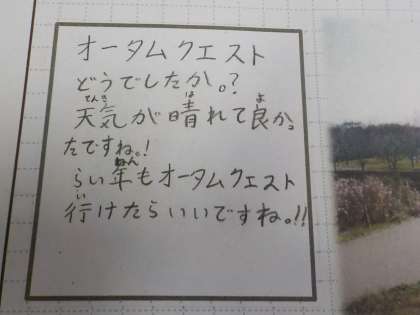 オータムクエスト
どうでしたか。?
天気が晴れて良かっ
たですね。!
らい年もオータムクエスト
行けたらいいですね。!!